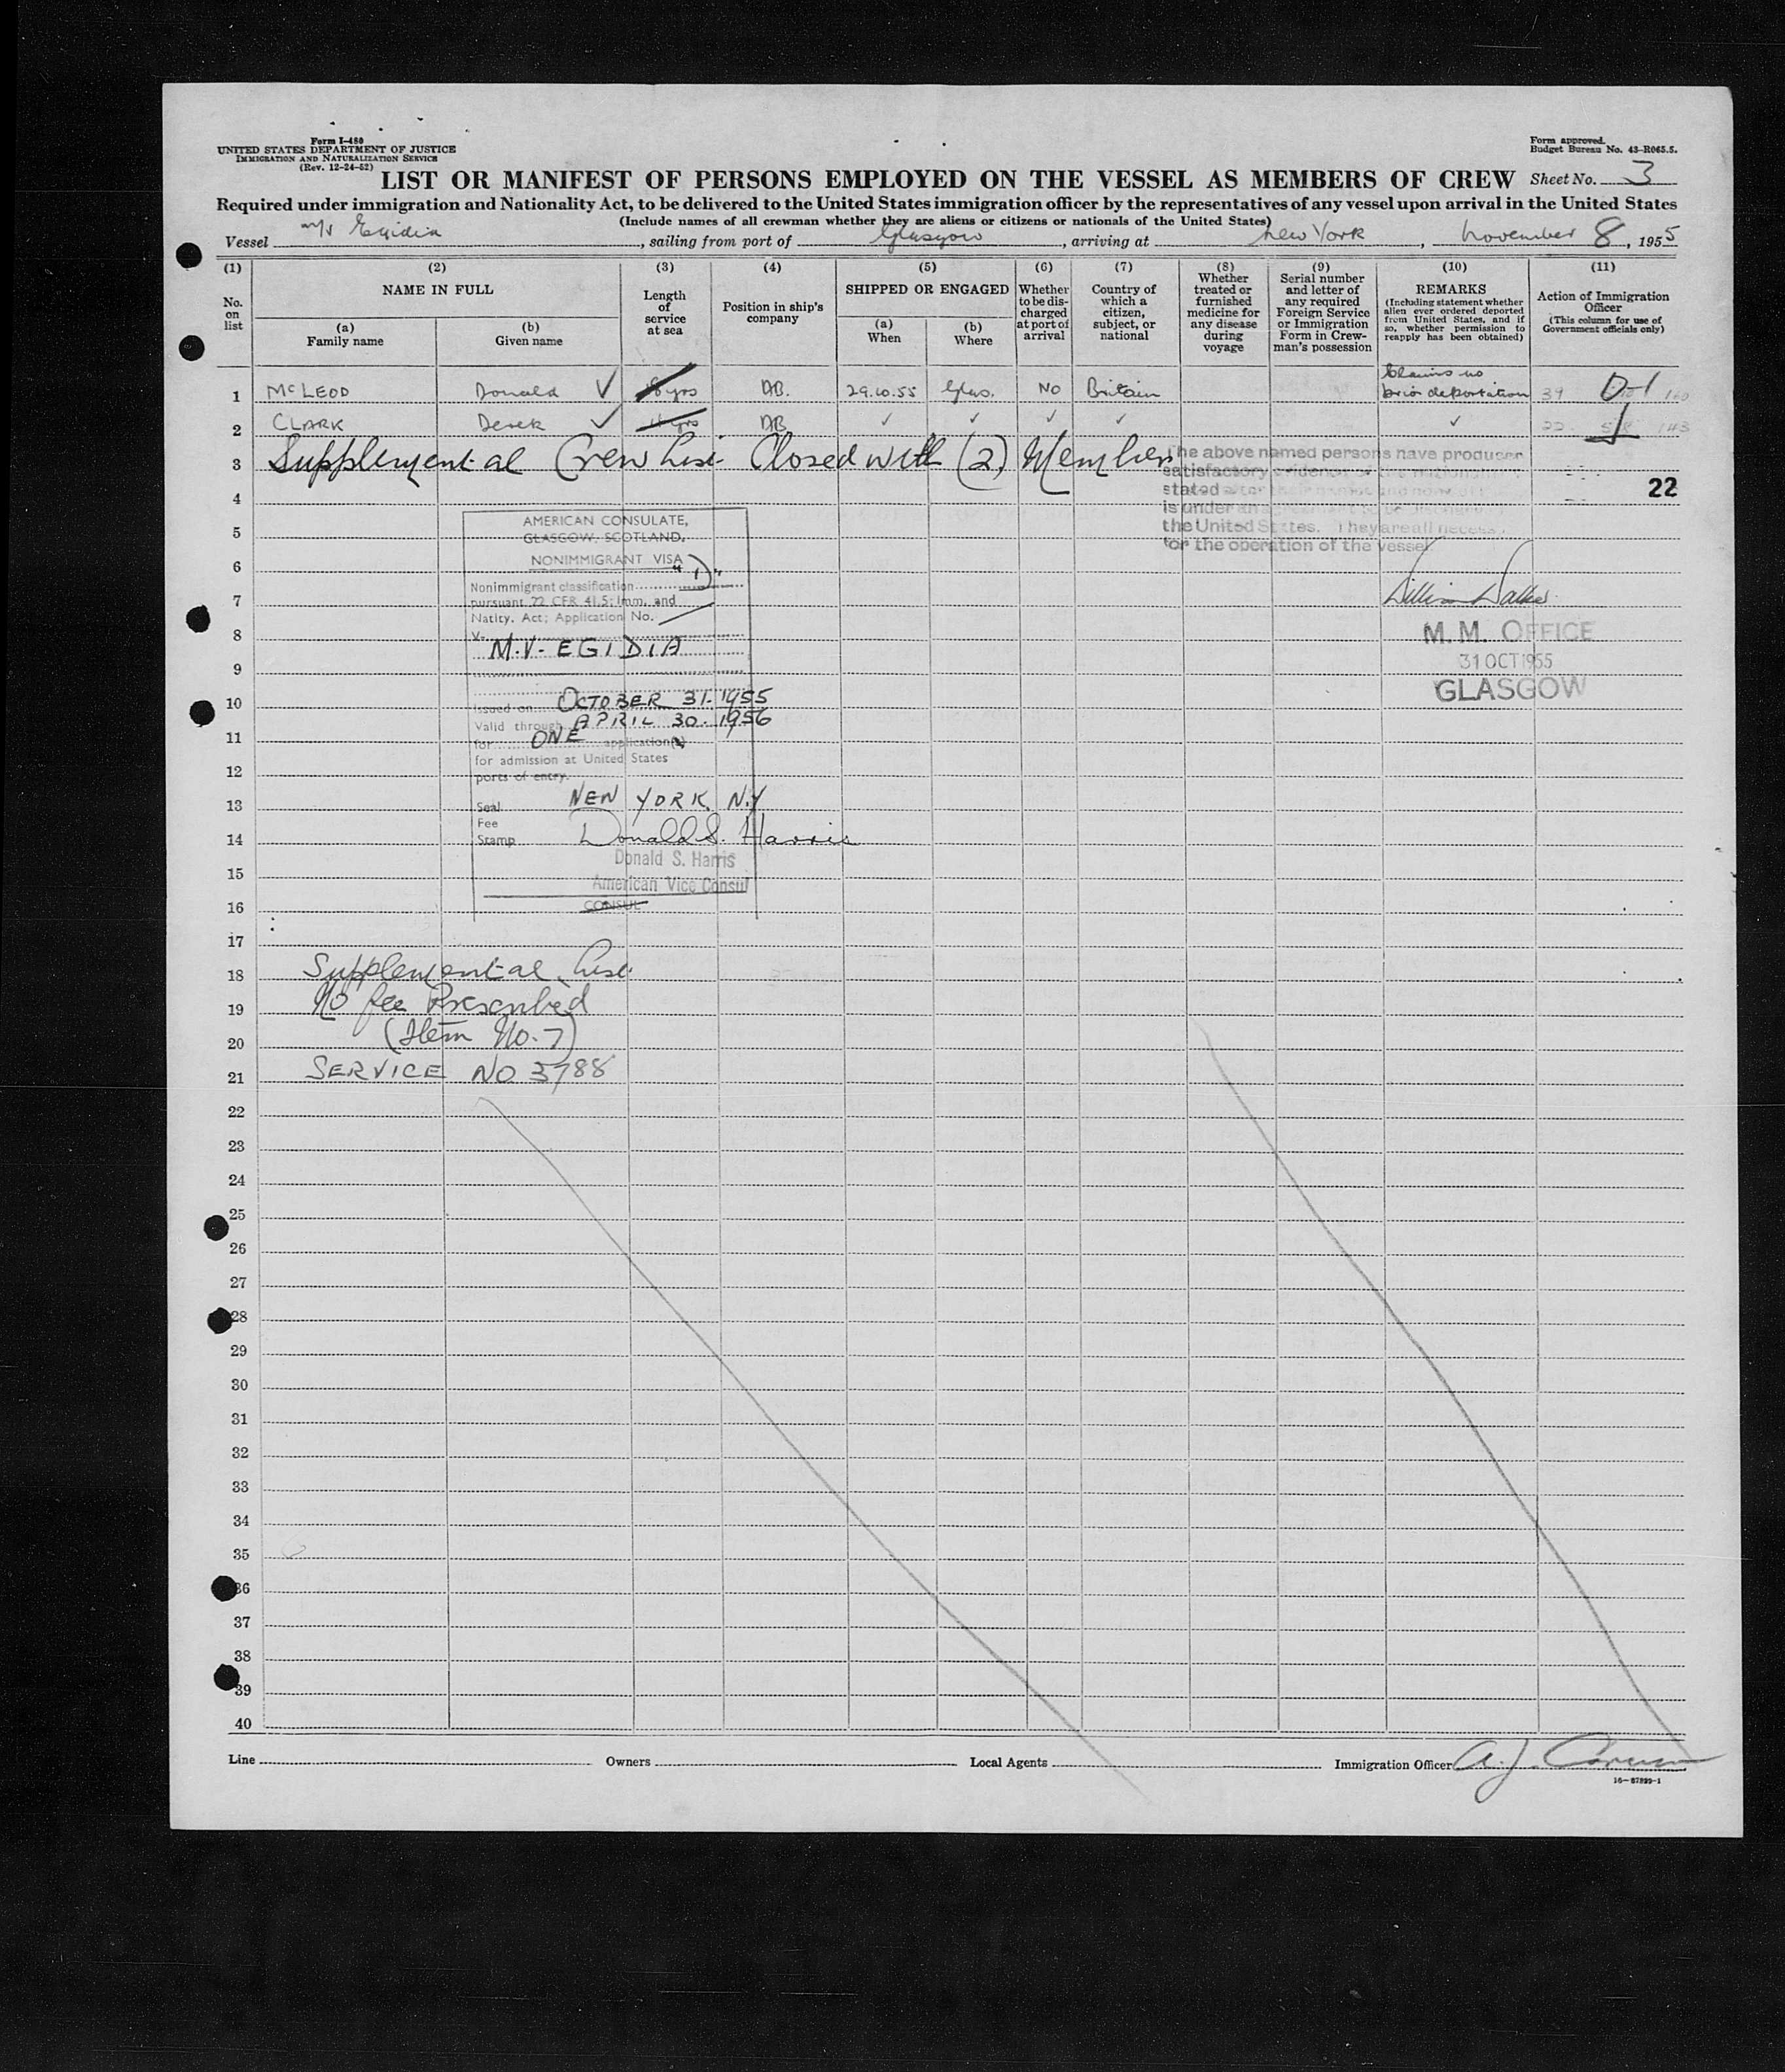 Form I-480
UNITED STATES DEPARTMENT OF JUSTICE
IMMIGRATION AND NATURALIZATION SERVICE
(Rev. 12-24-52)
Form approved.
Budget Bureau No. 43-R065.5.
LIST OR MANIFEST OF PERSONS EMPLOYED ON THE VESSEL AS MEMBERS OF CREW Sheet No. 3
Required under immigration and Nationality Act, to be delivered to the United States immigration officer by the representatives of any vessel upon arrival in the United States
(Include names of all crewman whether they are aliens or citizens or nationals of the United States)
Vessel m/v Egidia, sailing from port of Glasgow, arriving at New York, November 8, 1955
(1) (2) (3) (4) (5) (6) (7) (8) (9) (10) (11)
No. on list
NAME IN FULL
(a) Family name
(b) Given name
Length of service at sea
Position in ship's company
SHIPPED OR ENGAGED
(a) When
(b) Where
Whether to be discharged at port of arrival
Country of which a citizen, subject, or national
Whether treated or furnished medicine for any disease during voyage
Serial number and letter of any required Foreign Service or Immigration Form in Crewman's possession
REMARKS
(Including statement whether alien ever ordered deported from United States, and if so, whether permission to reapply has been obtained)
Action of Immigration Officer
(This column for use of Government officials only)
1 McLEOD Donald ✓ yrs AB. 29.10.55 Glas. NO Britain Claims no prior deportation 39 D-1 160
2 CLARK Derek ✓ yrs AB ✓ ✓ ✓ ✓ ✓ 22 143
3 Supplemental Crew List Closed with (2) Members
The above named persons have produced
satisfactory evidence of the
stated
is under an
the United States. They are all necess
for the operation of the vessel.
22
4
5
6
7
8
9
10
11
12
13
14
15
16
17
18
19
20
21
22
23
24
25
26
27
28
29
30
31
32
33
34
35
36
37
38
39
40
AMERICAN CONSULATE,
GLASGOW, SCOTLAND.
NONIMMIGRANT VISA
Nonimmigrant classification "D"
pursuant 22 CFR 41.5; Imm. and
Natity. Act; Application No.
V-
M.V. EGIDIA
Issued on OCTOBER 31. 1955
Valid through APRIL 30. 1956
for ONE application(s)
for admission at United States
ports of entry.
Seal NEW YORK, N.Y
Fee
Stamp Donald S. Harris
Donald S. Harris
American Vice Consul
CONSUL
William Walker
M. M. OFFICE
31 OCT 1955
GLASGOW
Supplemental List
No fee Prescribed
(Item No. 7)
SERVICE NO 3788
Line Owners Local Agents Immigration Officer A. J. Caruso
16-67899-1